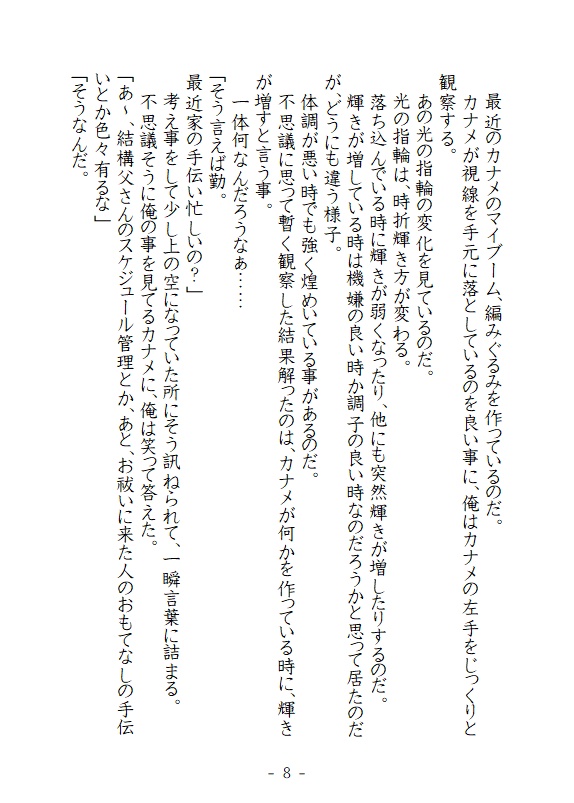 最近のカナメのマイブーム、編みぐるみを作っているのだ。
カナメが視線を手元に落としているのを良い事に、俺はカナメの左手をじっくりと
観察する。
あの光の指輪の変化を見ているのだ。
光の指輪は、時折輝き方が変わる。
落ち込んでいる時に輝きが弱くなったり、他にも突然輝きが増したりするのだ。
輝きが増している時は機嫌の良い時か調子の良い時なのだろうかと思って居たのだ
が、どうにも違う様子。
体調が悪い時でも強く煌めいている事があるのだ。
不思議に思って暫く観察した結果解ったのは、カナメが何かを作っている時に、輝き
が増すと言う事。
一体何なんだろうなぁ……
「そう言えば勤。
最近家の手伝い忙しいの？」
考え事をして少し上の空になっていた所にそう訊ねられて、一瞬言葉に詰まる。
不思議そうに俺の事を見てるカナメに、俺は笑って答えた。
「あ〜、結構父さんのスケジュール管理とか、あと、お祓いに来た人のおもてなしの手伝
いとか色々有るな」
「そうなんだ。
- 8 -